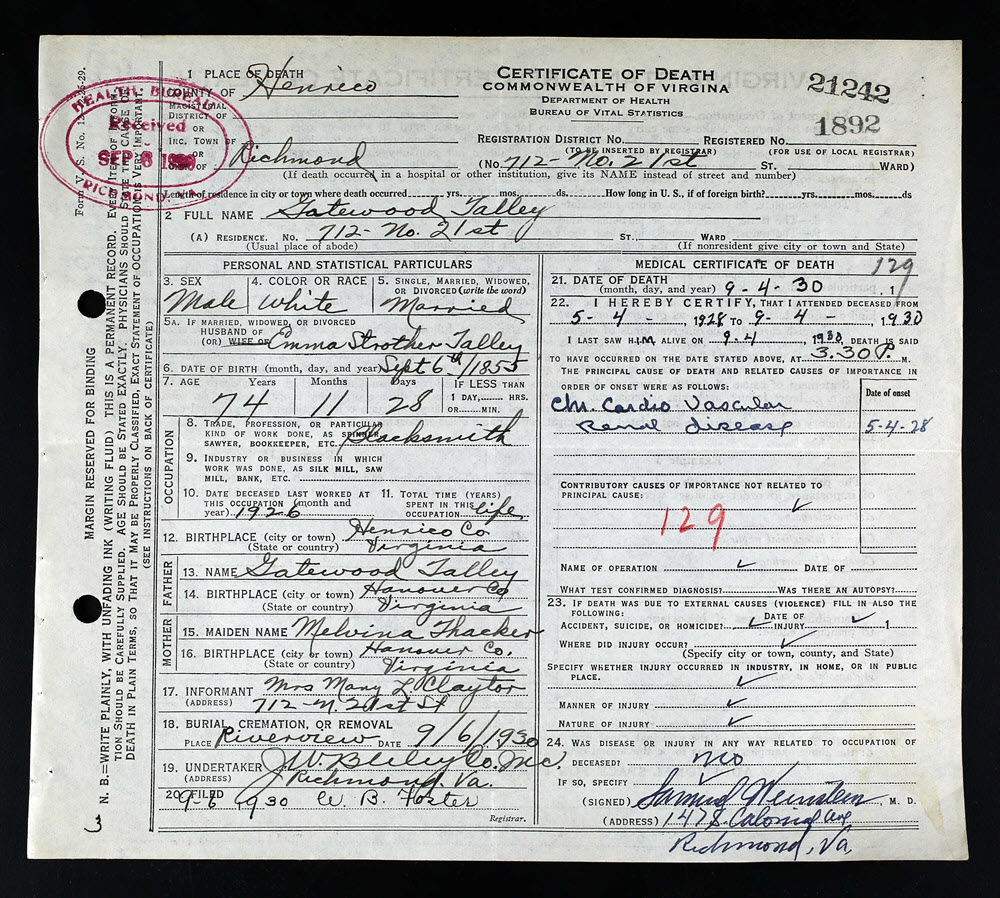 Form V. S. No. 12
N. B.=WRITE PLAINLY, WITH UNFADING INK (WRITING FLUID) THIS IS A PERMANENT RECORD. EVERY ITEM OF INFORMATION SHOULD BE CAREFULLY SUPPLIED. AGE SHOULD BE STATED EXACTLY. PHYSICIANS SHOULD STATE THE CAUSE OF DEATH IN PLAIN TERMS, SO THAT IT MAY BE PROPERLY CLASSIFIED. EXACT STATEMENT OF OCCUPATION IS VERY IMPORTANT.
(SEE INSTRUCTIONS ON BACK OF CERTIFICATE)
MARGIN RESERVED FOR BINDING
3
HEALTH BUREAU
Received
SEP 8
RICHMOND
CERTIFICATE OF DEATH
COMMONWEALTH OF VIRGINIA
DEPARTMENT OF HEALTH
BUREAU OF VITAL STATISTICS
21242
1892
1 PLACE OF DEATH
COUNTY OF Henrico
MAGISTERIAL
DISTRICT OF
OR
INC. TOWN OF
OR
Richmond
REGISTRATION DISTRICT NO. REGISTERED NO.
(TO BE INSERTED BY REGISTRAR) (FOR USE OF LOCAL REGISTRAR)
(No. 712- No. 21st ST. WARD)
(If death occurred in a hospital or other institution, give its NAME instead of street and number)
Length of residence in city or town where death occurred yrs. mos. ds. How long in U. S., if of foreign birth? yrs. mos. ds
2 FULL NAME Gatewood Talley
(A) RESIDENCE. NO. 712- No. 21st ST., WARD
(Usual place of abode) (If nonresident give city or town and State)
PERSONAL AND STATISTICAL PARTICULARS
3. SEX Male
4. COLOR OR RACE White
5. SINGLE, MARRIED, WIDOWED, OR DIVORCED (write the word) Married
5A. IF MARRIED, WIDOWED, OR DIVORCED
HUSBAND OF
(OR) WIFE OF Emma Strother Talley
6. DATE OF BIRTH (month, day, and year) Sept 6th/1855
7. AGE Years Months Days IF LESS THAN
74 11 28 1 DAY, HRS.
OR MIN.
OCCUPATION
8. TRADE, PROFESSION, OR PARTICULAR
KIND OF WORK DONE, AS SPINNER,
SAWYER, BOOKKEEPER, ETC. Blacksmith
9. INDUSTRY OR BUSINESS IN WHICH
WORK WAS DONE, AS SILK MILL, SAW
MILL, BANK, ETC.
10. DATE DECEASED LAST WORKED AT
THIS OCCUPATION (month and
year) 1926
11. TOTAL TIME (YEARS)
SPENT IN THIS
OCCUPATION life
12. BIRTHPLACE (city or town) Henrico Co.
(State or country) Virginia
FATHER
13. NAME Gatewood Talley
14. BIRTHPLACE (city or town) Hanover Co
(State or country) Virginia
MOTHER
15. MAIDEN NAME Melvina Thacker
16. BIRTHPLACE (city or town) Hanover Co.
(State or country) Virginia
17. INFORMANT Mrs Mary L. Claytor
(ADDRESS) 712-N. 21st St
18. BURIAL, CREMATION, OR REMOVAL
PLACE Riverview DATE 9/6/1930
19. UNDERTAKER J. W. Bliley Co. Inc.
(ADDRESS) Richmond. Va.
20. FILED 9-6 1930 W. B. Foster
Registrar.
MEDICAL CERTIFICATE OF DEATH
129
21. DATE OF DEATH
(month, day, and year) 9-4-30 , 1
22. I HEREBY CERTIFY, THAT I ATTENDED DECEASED FROM
5-4-, 1928 TO 9-4-, 1930
I LAST SAW HIM ALIVE ON 9-4, 1930, DEATH IS SAID
TO HAVE OCCURRED ON THE DATE STATED ABOVE, AT 3.30 P. M.
THE PRINCIPAL CAUSE OF DEATH AND RELATED CAUSES OF IMPORTANCE IN
ORDER OF ONSET WERE AS FOLLOWS:
Date of onset
Chr. Cardio Vascular
Renal disease 5-4-28
CONTRIBUTORY CAUSES OF IMPORTANCE NOT RELATED TO
PRINCIPAL CAUSE:
129
NAME OF OPERATION DATE OF
WHAT TEST CONFIRMED DIAGNOSIS? WAS THERE AN AUTOPSY?
23. IF DEATH WAS DUE TO EXTERNAL CAUSES (VIOLENCE) FILL IN ALSO THE
FOLLOWING:
ACCIDENT, SUICIDE, OR HOMICIDE? DATE OF INJURY 1
WHERE DID INJURY OCCUR?
(Specify city or town, county, and State)
SPECIFY WHETHER INJURY OCCURRED IN INDUSTRY, IN HOME, OR IN PUBLIC
PLACE.
MANNER OF INJURY
NATURE OF INJURY
24. WAS DISEASE OR INJURY IN ANY WAY RELATED TO OCCUPATION OF
DECEASED? no
IF SO, SPECIFY
(SIGNED) Samuel Weinstein, M. D.
(ADDRESS) 147 S. Colonial Ave
Richmond, Va,